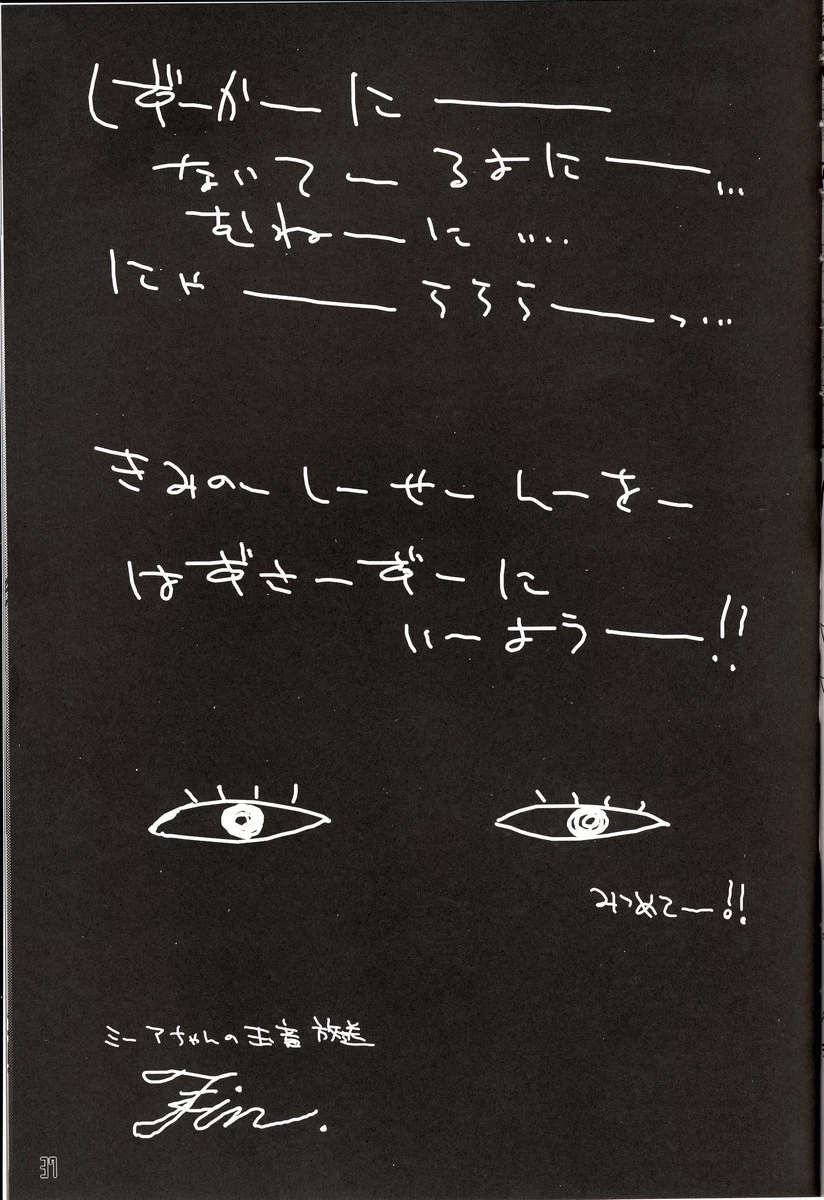 しずーかーにー
ないてーるよにー…
むねーに….
にゃーうううーっ…
きみのーしーせーんーをー
はずさーずーに
いーようー!!
みつめてー!!
ミーアちゃんの玉音放送
Fin.
37